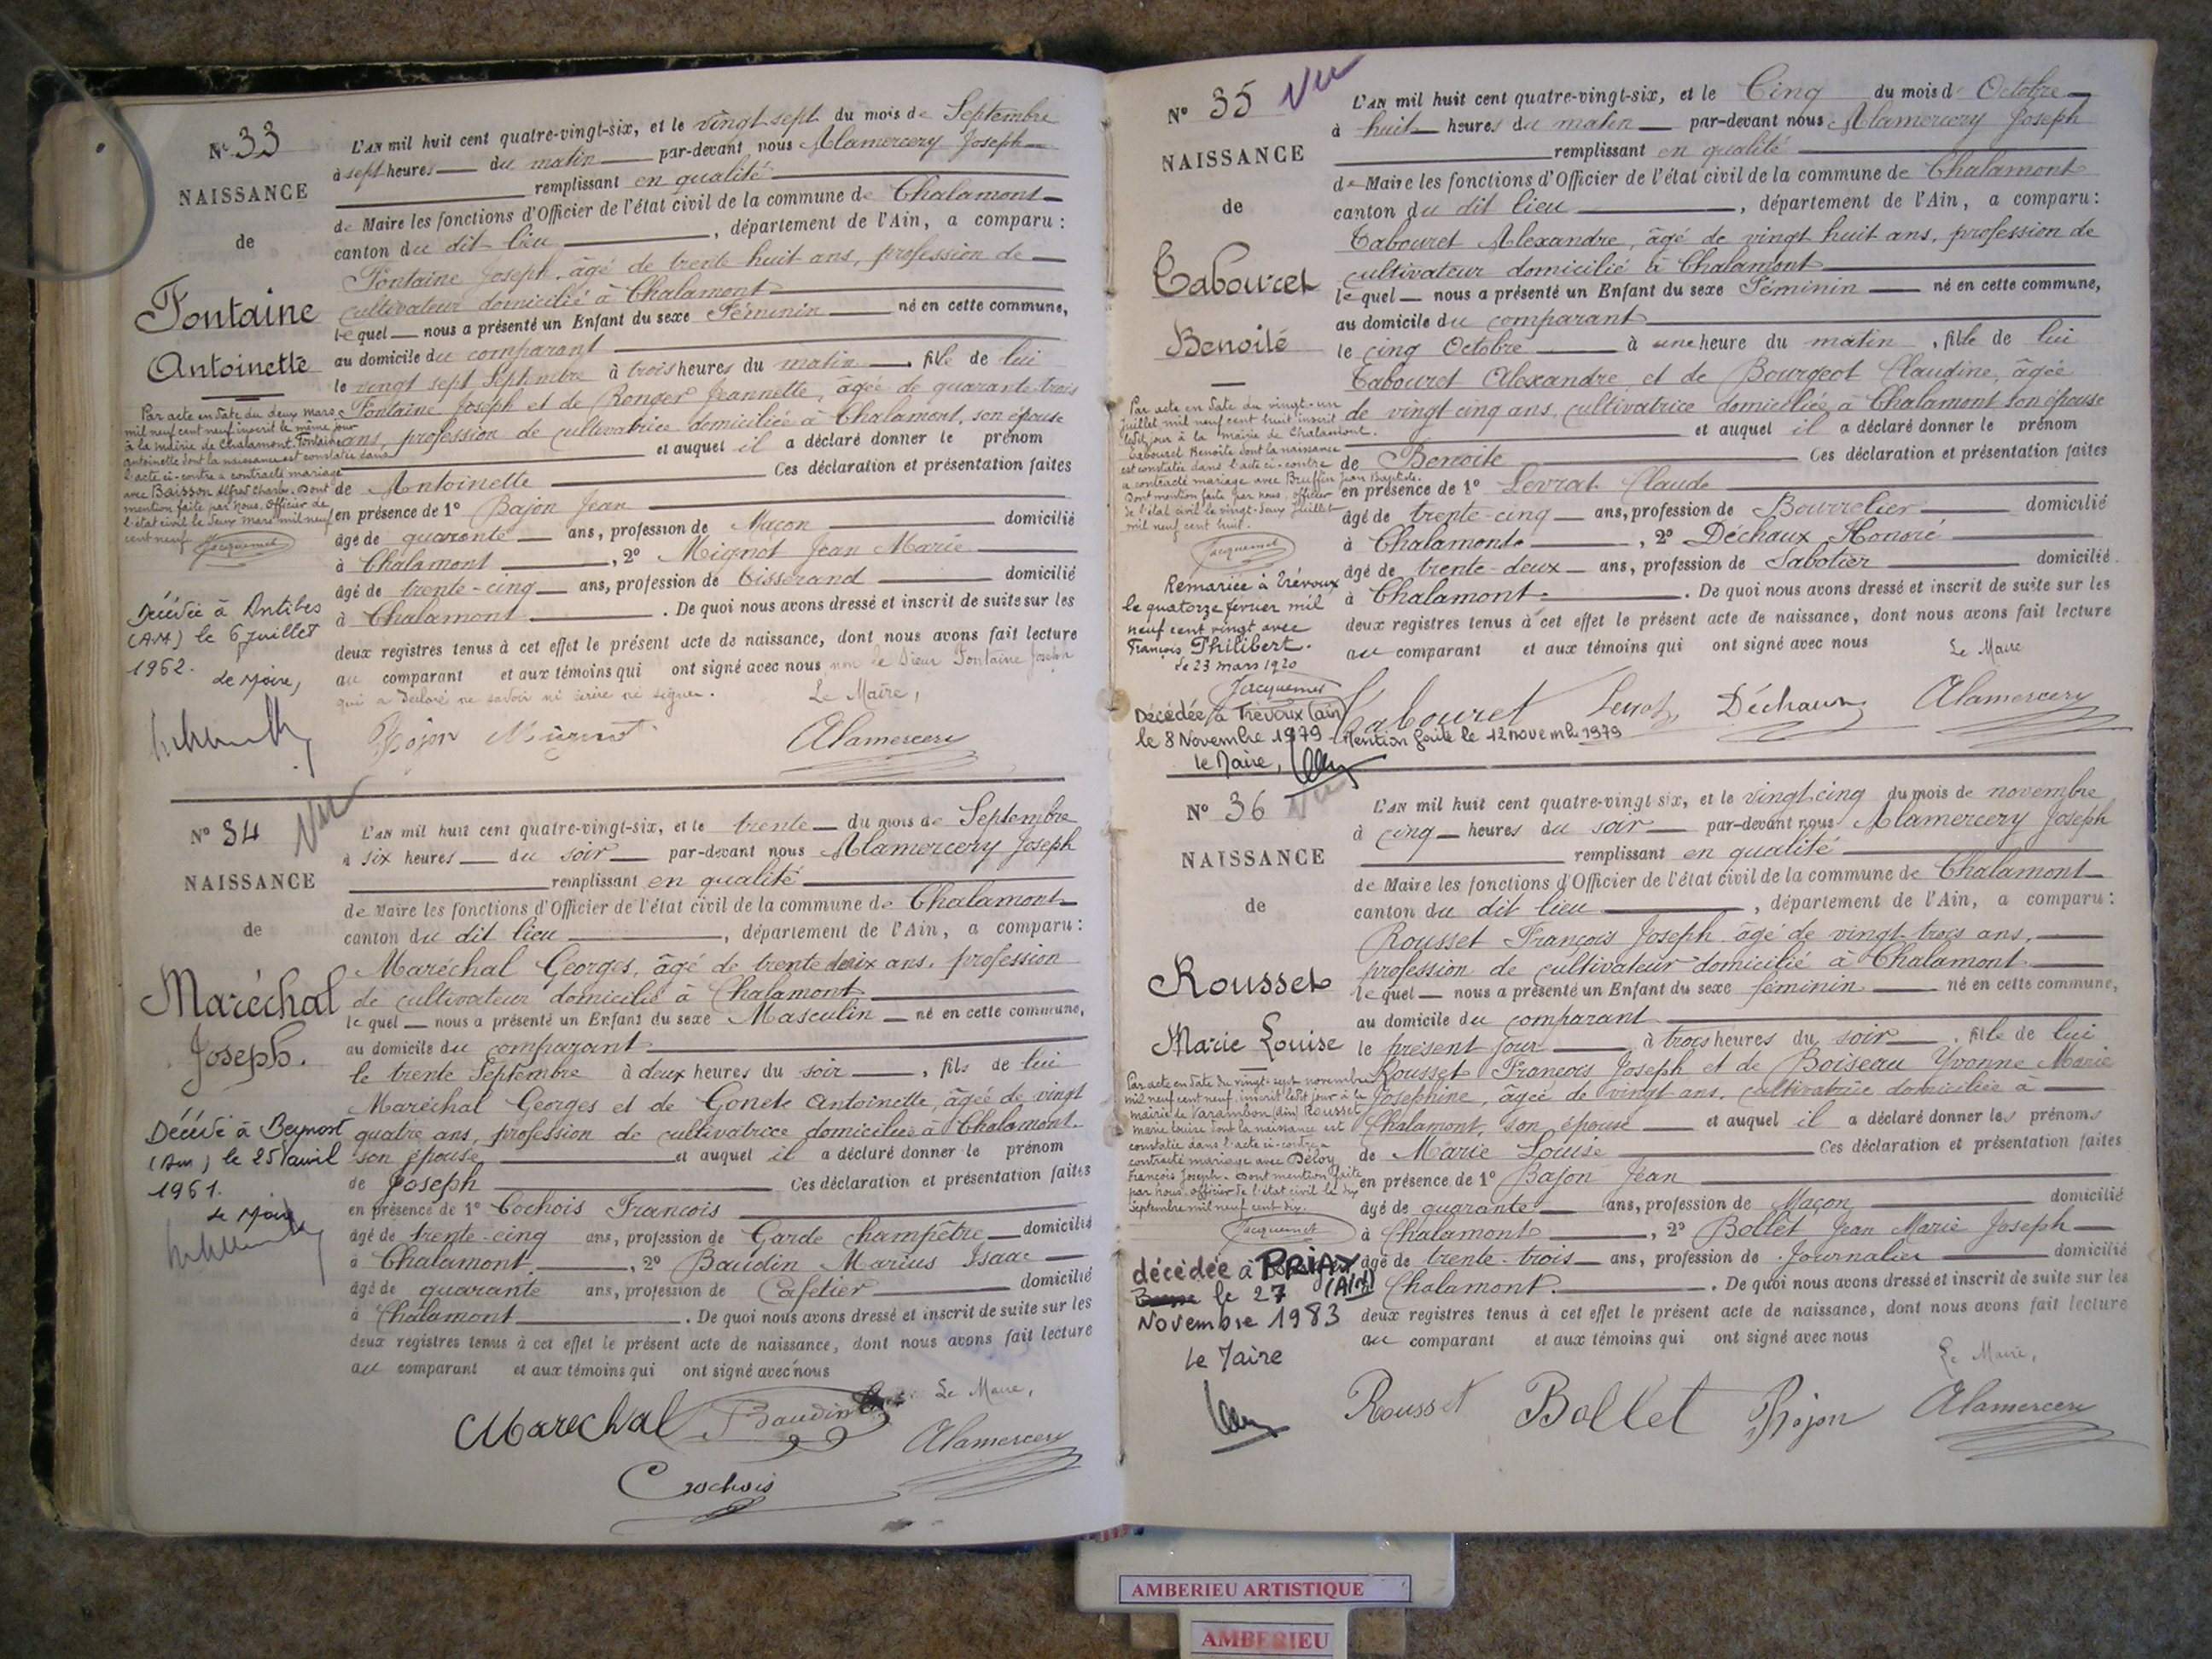 N° 33
NAISSANCE
de
Fontaine
Antoinette
Par acte en date du deux mars
mil neuf cent neuf inscrit le même jour
à la mairie de Chalamont, Fontaine
antoinette dont la naissance est constatée dans
l'acte ci-contre a contracté mariage
avec Baisson Alfred Charles. Dont
mention faite par nous, Officier de
l'état civil le deux mars mil neuf
cent neuf Jacquemet
Décédée à Antibes
(AM) le 6 juillet
1962.
Le Maire,
L'AN mil huit cent quatre-vingt-six, et le vingt sept du mois de Septembre
à sept heures du matin par-devant nous Alamercery Joseph
remplissant en qualité
de Maire les fonctions d'Officier de l'état civil de la commune de Chalamont
canton du dit lieu, département de l'Ain, a comparu :
Fontaine Joseph, âgé de trente huit ans, profession de
cultivateur domicilié à Chalamont
lequel nous a présenté un Enfant du sexe Féminin né en cette commune,
au domicile du comparant
le vingt sept Septembre à trois heures du matin, fille de lui
Fontaine Joseph et de Ronger Jeannette, âgée de quarante trois
ans, profession de cultivatrice domiciliée à Chalamont, son épouse
et auquel il a déclaré donner le prénom
de Antoinette Ces déclaration et présentation faites
en présence de 1° Bajon Jean
âgé de quarante ans, profession de Maçon domicilié
à Chalamont, 2° Mignot Jean Marie
âgé de trente-cinq ans, profession de Tisserand domicilié
à Chalamont. De quoi nous avons dressé et inscrit de suite sur les
deux registres tenus à cet effet le présent acte de naissance, dont nous avons fait lecture
au comparant et aux témoins qui ont signé avec nous non le Sieur Fontaine Joseph
qui a déclaré ne savoir ni écrire ni signer. Le Maire,
Bajon Mignot Alamercery
N° 34 Vu
NAISSANCE
de
Maréchal
Joseph.
Décédé à Beynost
(Ain) le 25 avril
1961.
Le Maire
L'AN mil huit cent quatre-vingt-six, et le trente du mois de Septembre
à six heures du soir par-devant nous Alamercery Joseph
remplissant en qualité
de Maire les fonctions d'Officier de l'état civil de la commune de Chalamont
canton du dit lieu, département de l'Ain, a comparu :
Maréchal Georges, âgé de trente deux ans, profession
de cultivateur domicilié à Chalamont
lequel nous a présenté un Enfant du sexe Masculin né en cette commune,
au domicile du comparant
le trente Septembre à deux heures du soir, fils de lui
Maréchal Georges et de Gonet Antoinette, âgée de vingt
quatre ans, profession de cultivatrice domiciliée à Chalamont.
son épouse et auquel il a déclaré donner le prénom
de Joseph Ces déclaration et présentation faites
en présence de 1° Cochois François
âgé de trente-cinq ans, profession de Garde champêtre domicilié
à Chalamont, 2° Baudin Marius Isaac
âgé de quarante ans, profession de Cafetier domicilié
à Chalamont. De quoi nous avons dressé et inscrit de suite sur les
deux registres tenus à cet effet le présent acte de naissance, dont nous avons fait lecture
au comparant et aux témoins qui ont signé avec nous
Le Maire,
Marechal Baudin Alamercery
Cochois
N° 35 Vu
NAISSANCE
de
Tabouret
Benoite
Par acte en date du vingt-un
juillet mil neuf cent huit inscrit
ledit jour à la mairie de Chalamont.
Tabouret Benoite dont la naissance
est constatée dans l'acte ci-contre
a contracté mariage avec Bruffin Jean Baptiste.
Dont mention faite par nous, officier
de l'état civil le vingt-deux juillet
mil neuf cent huit.
Jacquemet
Remariée à Trévoux
le quatorze février mil
neuf cent vingt avec
François Philibert.
Le 23 mars 1920
Jacquemet
Décédée à Trévoux (ain)
le 8 Novembre 1979 - Mention faite le 12 novemb. 1979
le Maire,
L'AN mil huit cent quatre-vingt-six, et le Cinq du mois d Octobre
à huit heures du matin par-devant nous Alamercery Joseph
remplissant en qualité
de Maire les fonctions d'Officier de l'état civil de la commune de Chalamont
canton du dit lieu, département de l'Ain, a comparu :
Tabouret Alexandre, âgé de vingt huit ans, profession de
cultivateur domicilié à Chalamont
lequel nous a présenté un Enfant du sexe Féminin né en cette commune,
au domicile du comparant
le cinq Octobre à une heure du matin, fille de lui
Tabouret Alexandre et de Bourgeot Claudine, âgée
de vingt cinq ans, cultivatrice domiciliée à Chalamont son épouse
et auquel il a déclaré donner le prénom
de Benoite Ces déclaration et présentation faites
en présence de 1° Levrat Claude
âgé de trente-cinq ans, profession de Bourrelier domicilié
à Chalamont, 2° Déchaux Honoré
âgé de trente-deux ans, profession de Sabotier domicilié
à Chalamont. De quoi nous avons dressé et inscrit de suite sur les
deux registres tenus à cet effet le présent acte de naissance, dont nous avons fait lecture
au comparant et aux témoins qui ont signé avec nous Le Maire
Tabouret Levrat Déchaux Alamercery
N° 36 Vu
NAISSANCE
de
Rousset
Marie Louise
Par acte en date du vingt-sept novembre
mil neuf cent neuf, inscrit ledit jour à la
mairie de Varambon (Ain) Rousset
marie louise dont la naissance est
constatée dans l'acte ci-contre a
contracté mariage avec Deloy
François Joseph. Dont mention faite
par nous, officier de l'état civil le dix
Septembre mil neuf cent dix.
Jacquemet
décédée à PRIAY
(AIN) le 27
Novembre 1983
Le Maire
L'AN mil huit cent quatre-vingt six, et le vingt-cinq du mois de novembre
à cinq heures du soir par-devant nous Alamercery Joseph
remplissant en qualité
de Maire les fonctions d'Officier de l'état civil de la commune de Chalamont
canton du dit lieu, département de l'Ain, a comparu :
Rousset François Joseph âgé de vingt trois ans,
profession de cultivateur domicilié à Chalamont
lequel nous a présenté un Enfant du sexe féminin né en cette commune,
au domicile du comparant
le présent jour à trois heures du soir, fille de lui
Rousset François Joseph et de Boiseau Yvonne Marie
Josephine, âgée de vingt ans, cultivatrice domiciliée à
Chalamont, son épouse et auquel il a déclaré donner les prénoms
de Marie Louise Ces déclaration et présentation faites
en présence de 1° Bajon Jean
âgé de quarante ans, profession de Maçon domicilié
à Chalamont, 2° Bollet Jean Marie Joseph
âgé de trente-trois ans, profession de Journalier domicilié
Chalamont. De quoi nous avons dressé et inscrit de suite sur les
deux registres tenus à cet effet le présent acte de naissance, dont nous avons fait lecture
au comparant et aux témoins qui ont signé avec nous
Le Maire,
Rousset Bollet Bajon Alamercery
AMBERIEU ARTISTIQUE
AMBERIEU